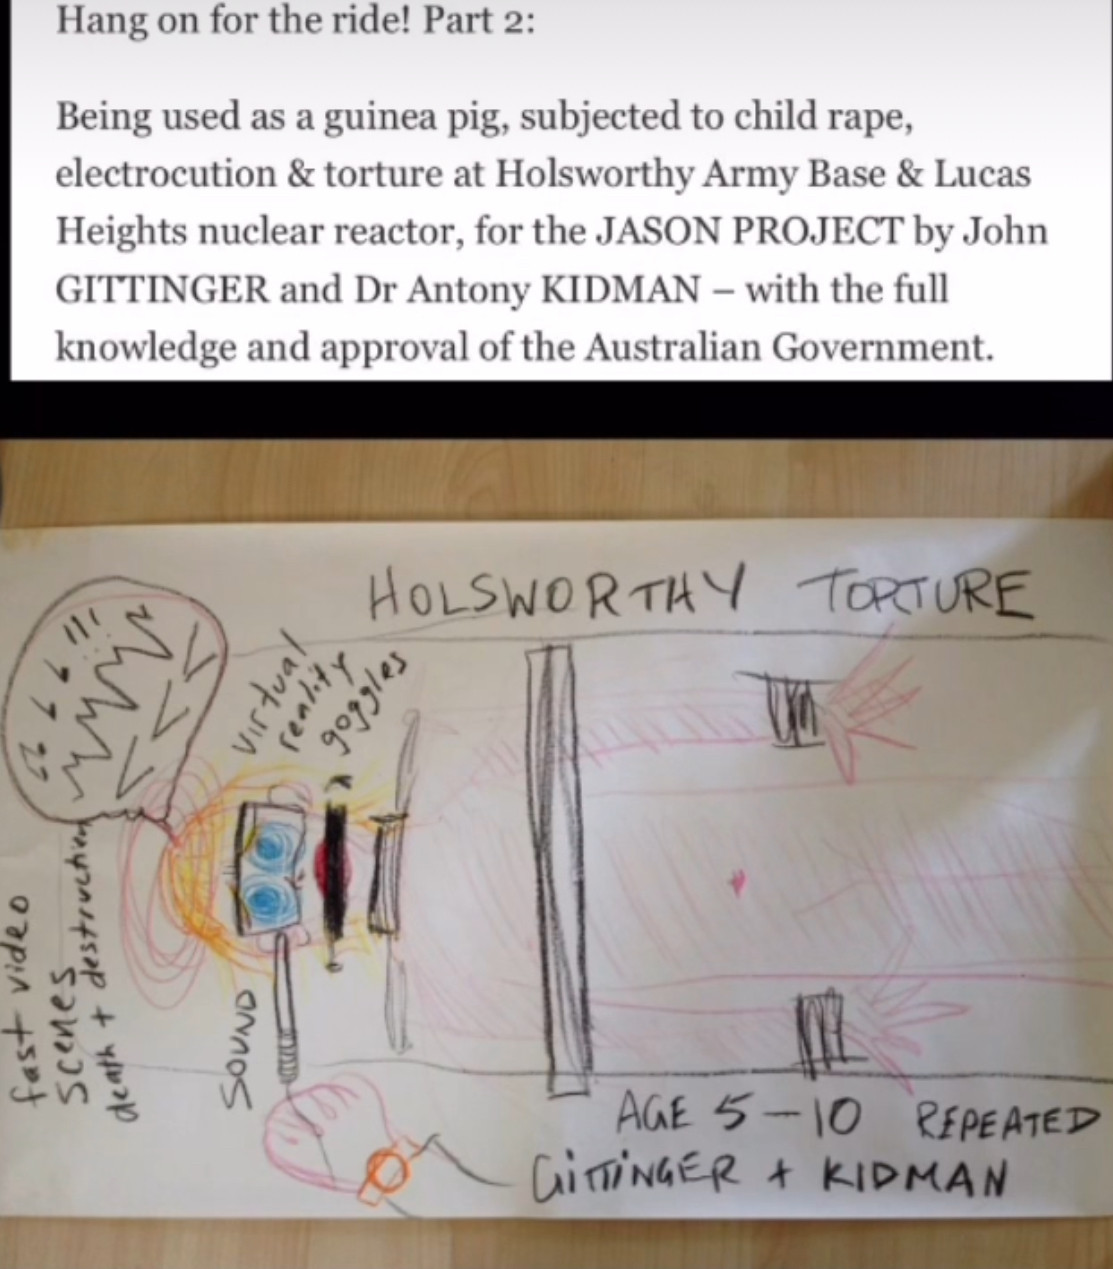 Hang on for the ride! Part 2:
Being used as a guinea pig, subjected to child rape,
electrocution & torture at Holsworthy Army Base & Lucas
Heights nuclear reactor, for the JASON PROJECT by John
GITTINGER and Dr Antony KIDMAN – with the full
knowledge and approval of the Australian Government.
HOLSWORTHY TORTURE
virtual
reality
goggles
fast video
scenes
death + destruction
SOUND
AGE 5-10 REPEATED
GITTINGER + KIDMAN